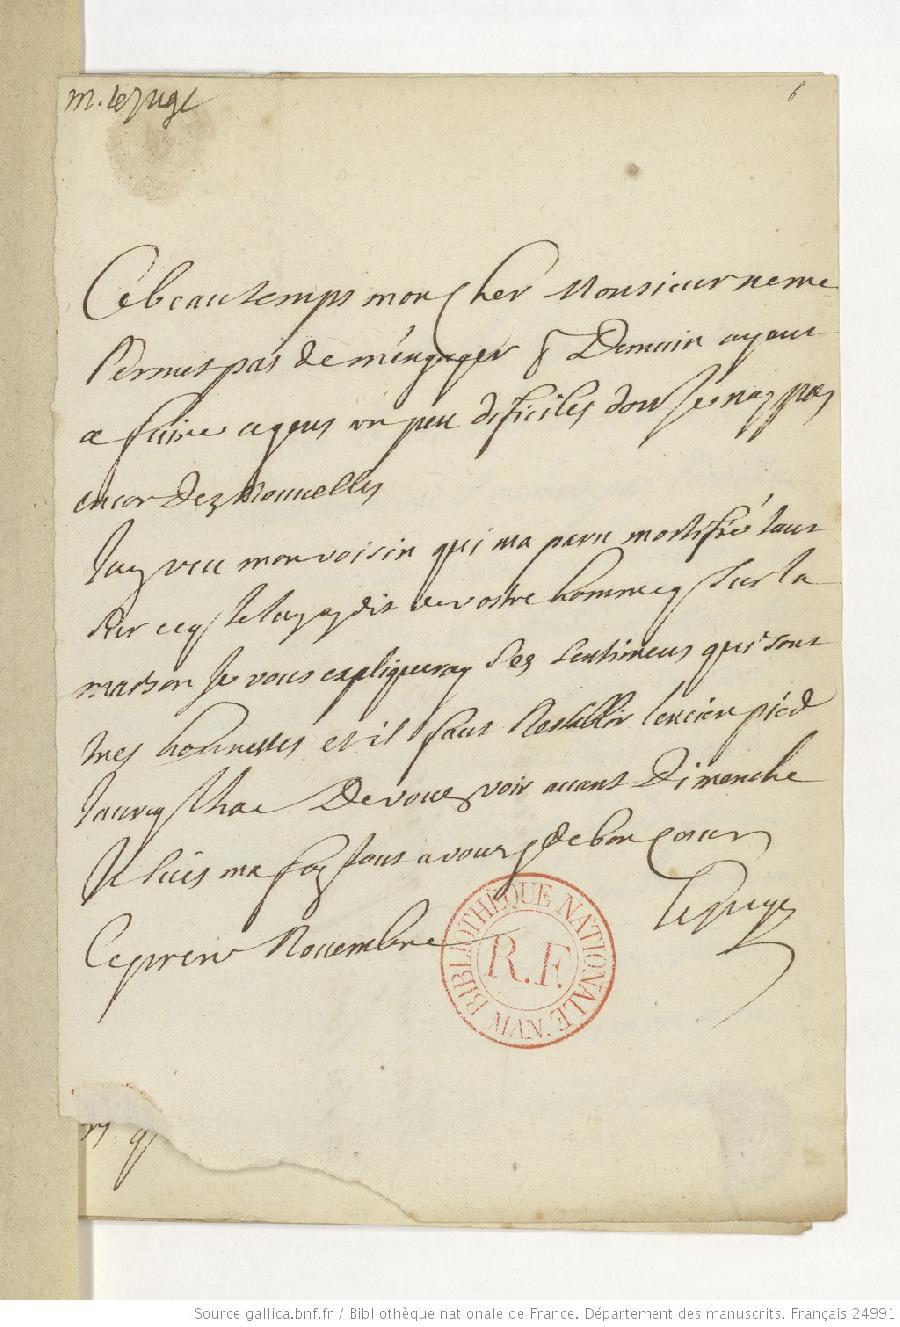 m. le Juge
6
Ce beau temps mon cher Monsieur ne me
permet pas de m'engager p Demain ayant
a faire a gens un peu dificiles dont Je nay pas
encor Des Nouvelles
Jay veu mon voisin qui ma paru mortifié tant
sur ce que de vostre homme sur la
maison Je vous expliqueray Ses Sentimens qui sont
tres honnestes et il faut Restablir lencien pied
Jauray lhoe De vous voir avant Dimenche
Je suis ma foy tout a vous de bon coeur
LeJuge
Ce premr Novembre
BIBLIOTHÈQUE NATIONALE MAN.
R.F.
Source gallica.bnf.fr / Bibliothèque nationale de France. Département des manuscrits. Français 24991